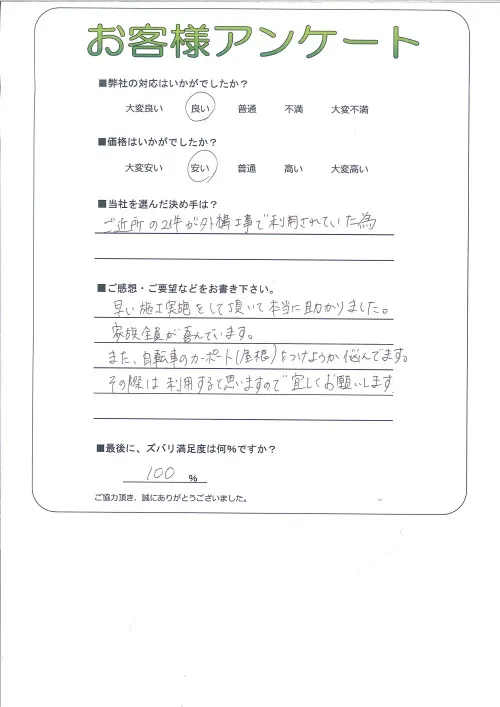 お客様アンケート
■弊社の対応はいかがでしたか？
大変良い 良い 普通 不満 大変不満
■価格はいかがでしたか?
大変安い 安い 普通 高い 大変高い
■当社を選んだ決め手は？
ご近所の2件が外構工事で利用されていた為
■ご感想・ご要望などをお書き下さい。
早い施工実施をして頂いて本当に助かりました。
家族全員が喜んでいます。
また、自転車のカーポート(屋根)をつけようか悩んでます。
その際は利用すると思いますので宜しくお願いします
■最後に、ズバリ満足度は何%ですか？
100 %
ご協力頂き、誠にありがとうございました。